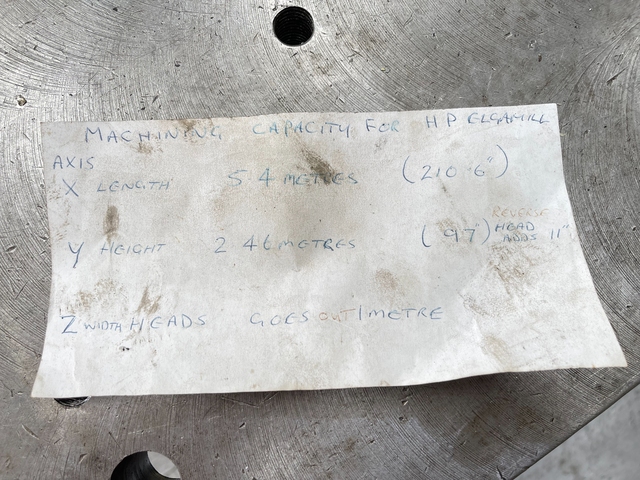 MACHINING CAPACITY FOR HP ELGAMILL
AXIS
X LENGTH 5 4 METRES (210·6")
REVERSE
Y HEIGHT 2 46 METRES (97") HEAD ADDS 11"
Z WIDTH HEADS GOES OUT 1 METRE